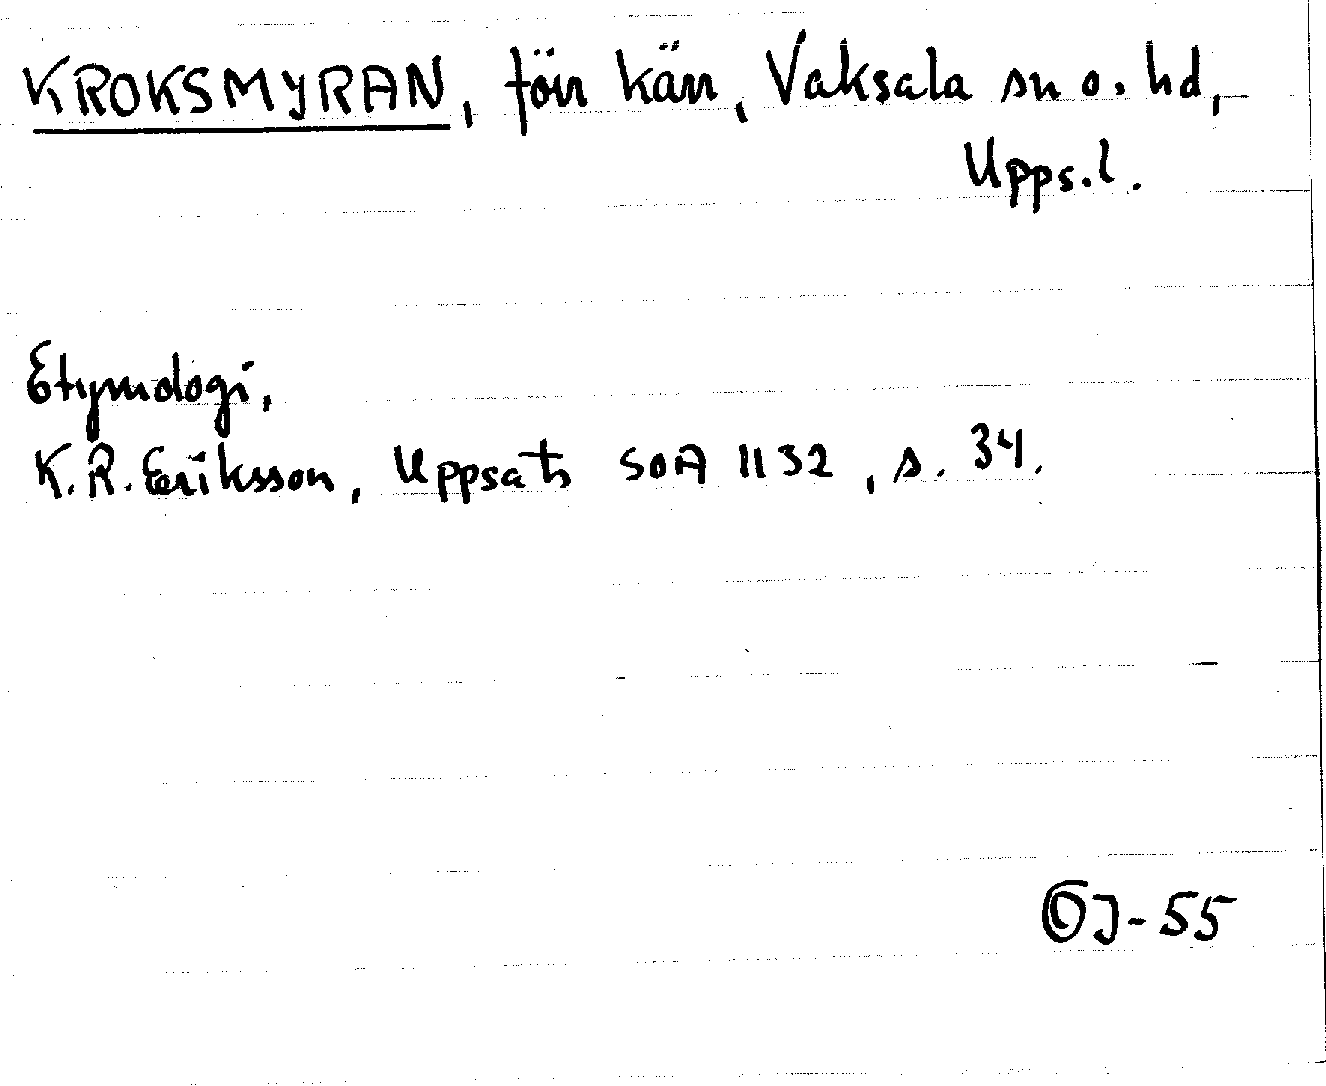 KROKSMYRAN, förr kärr, Vaksala sn o. hd,
Upps. l.
Etymologi,
K.R. Eriksson, Uppsats SOA 1132, s. 34.
OJ-55